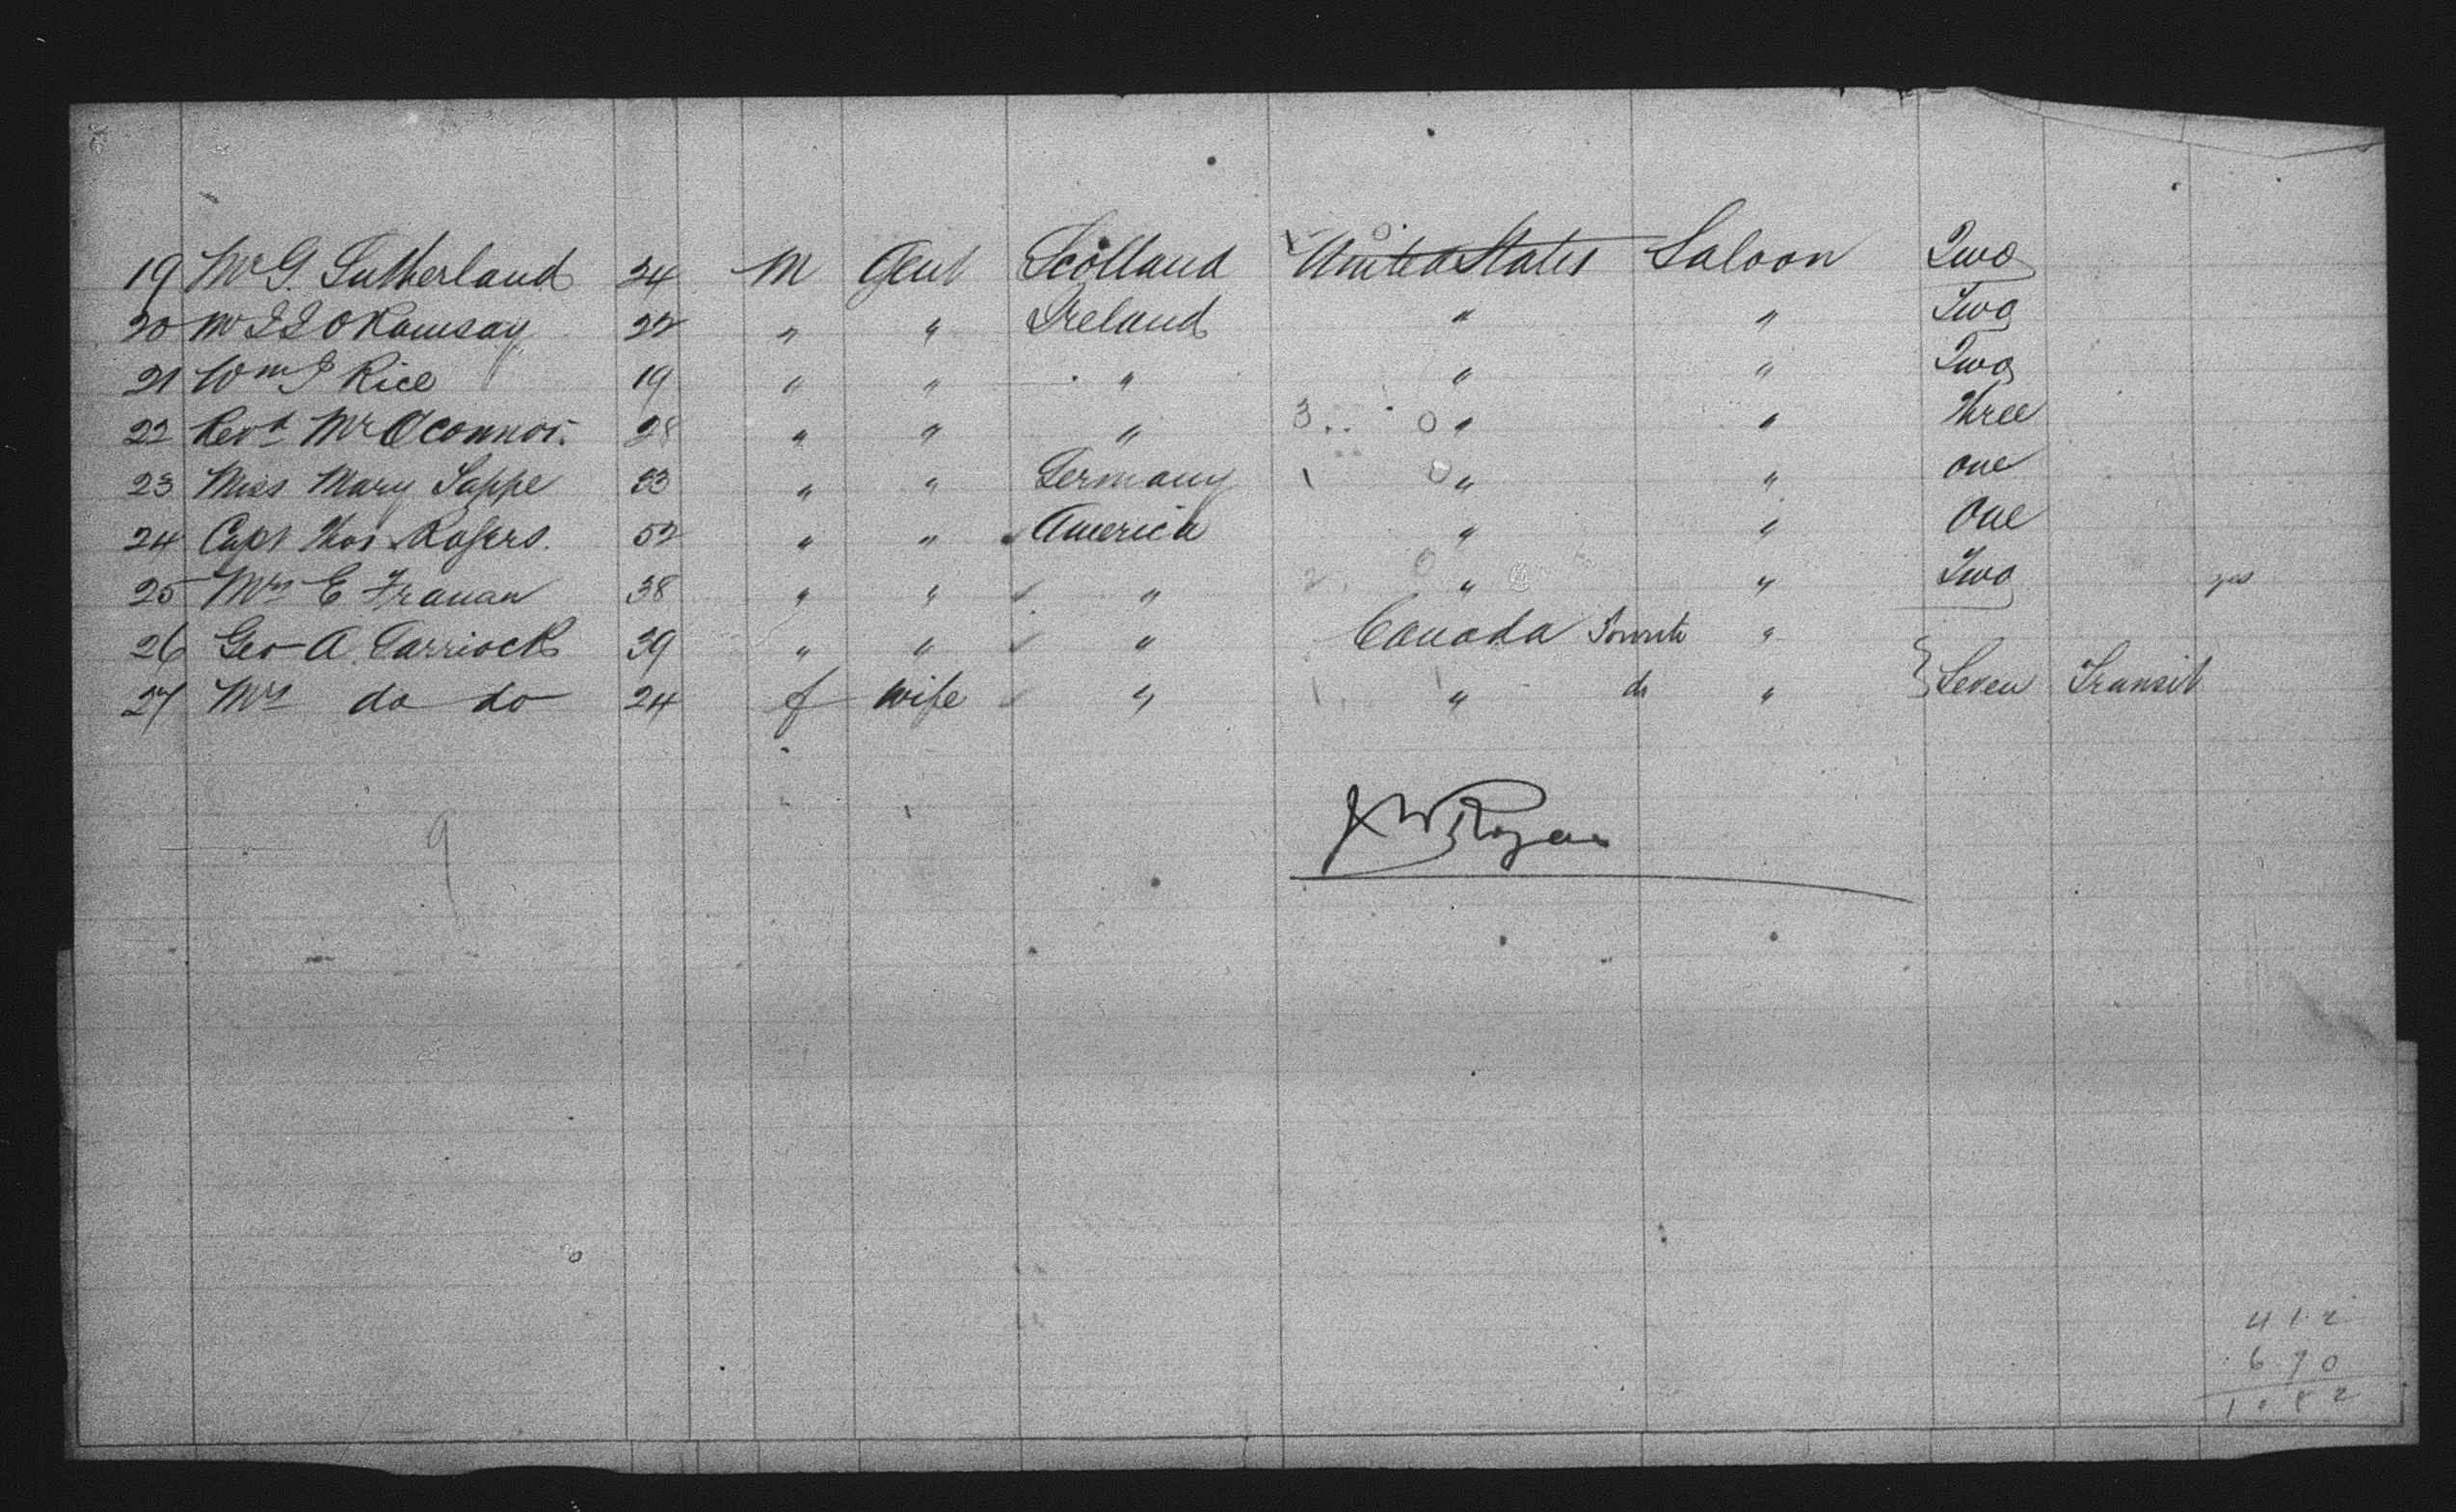 19 Mr G. Sutherland 24 M Gent Scotland United States Saloon Two
20 Mr J J O Ramsay 22 " " Ireland " " Two
21 Wm J Rice 19 " " " " " Two
22 Revd Mr O'Connor. 28 " " " 3 0 " " three
23 Miss Mary Sappe 23 " " Germany 1 0 " " one
24 Capt Thos Rogers. 52 " " America " " One
25 Mrs E 38 " " " " " Two yes
26 Geo A. 39 " " " Canada "
27 Mrs do do 24 f wife " " do " } Seven Transit
9
412
670
1082